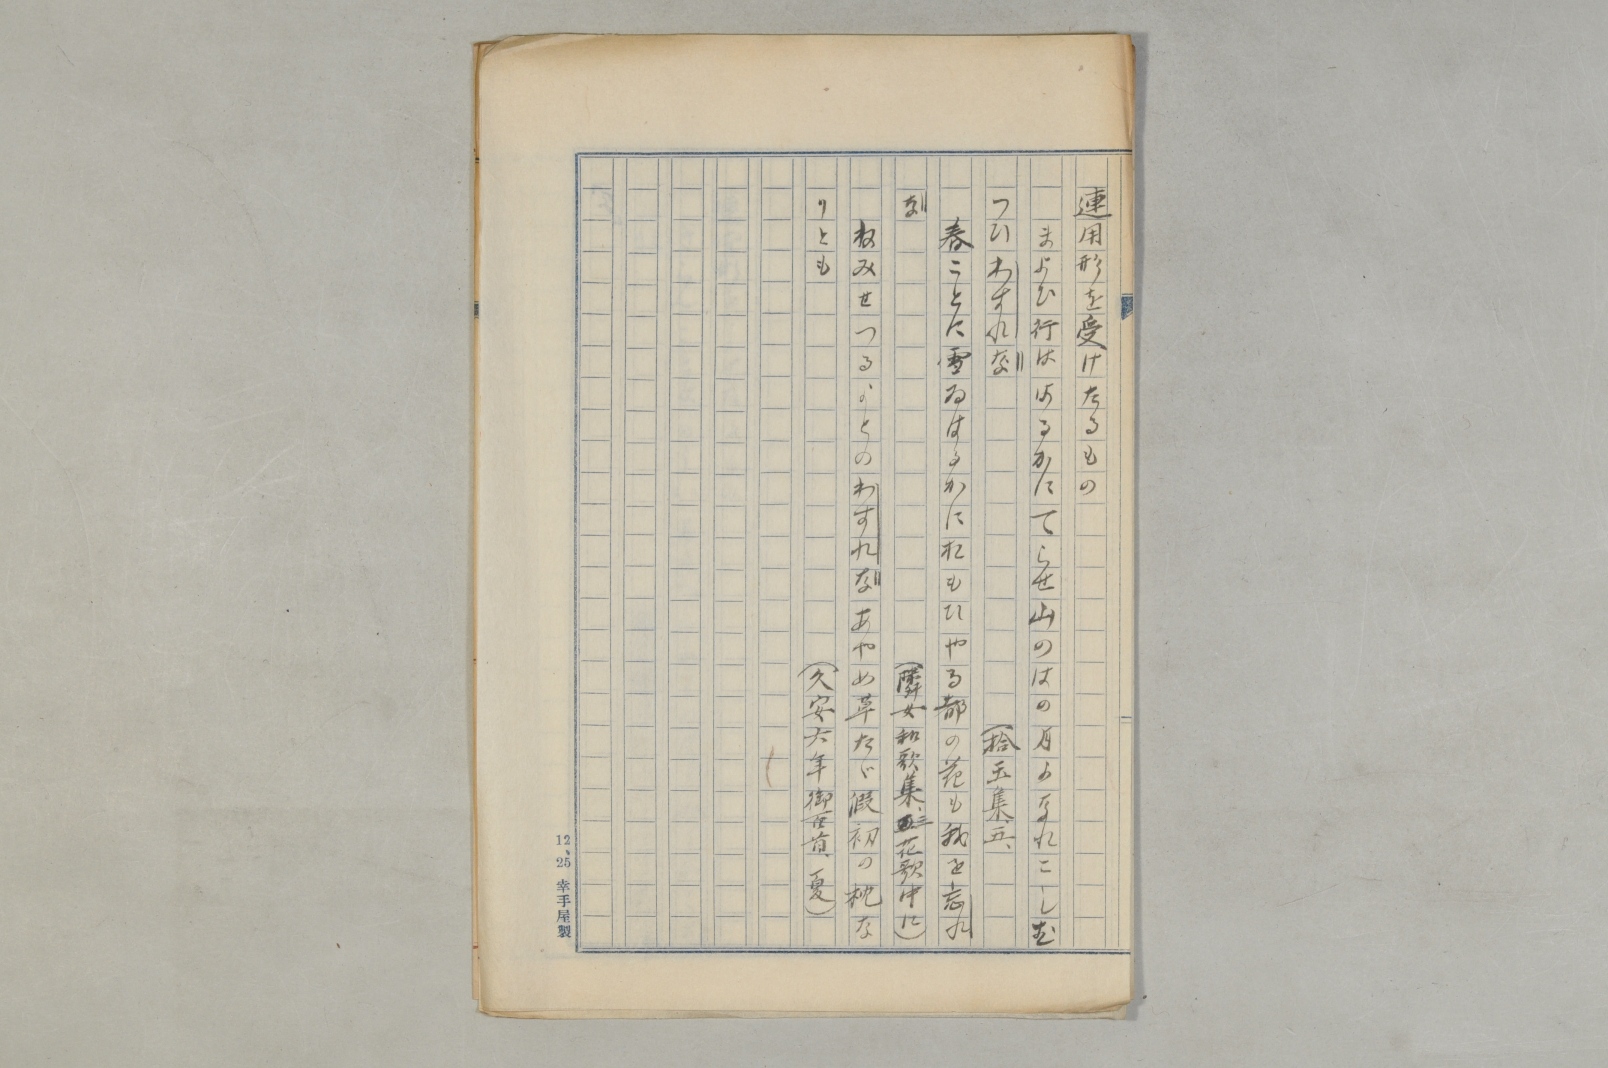 連用形を受けたるもの
まよひ行ははるかにてらせ山のはの月よなれこしむ
つひわすれな（拾玉集、五、
春ことに雲ゐはるかにおもひやる都の花も我を忘れ
な（隣女和歌集、三、花歌中に）
ねみせつるよとのわすれなあやめ草たゞ假初の枕な
りとも（久安六年御百首、夏）
12、25 幸手屋製